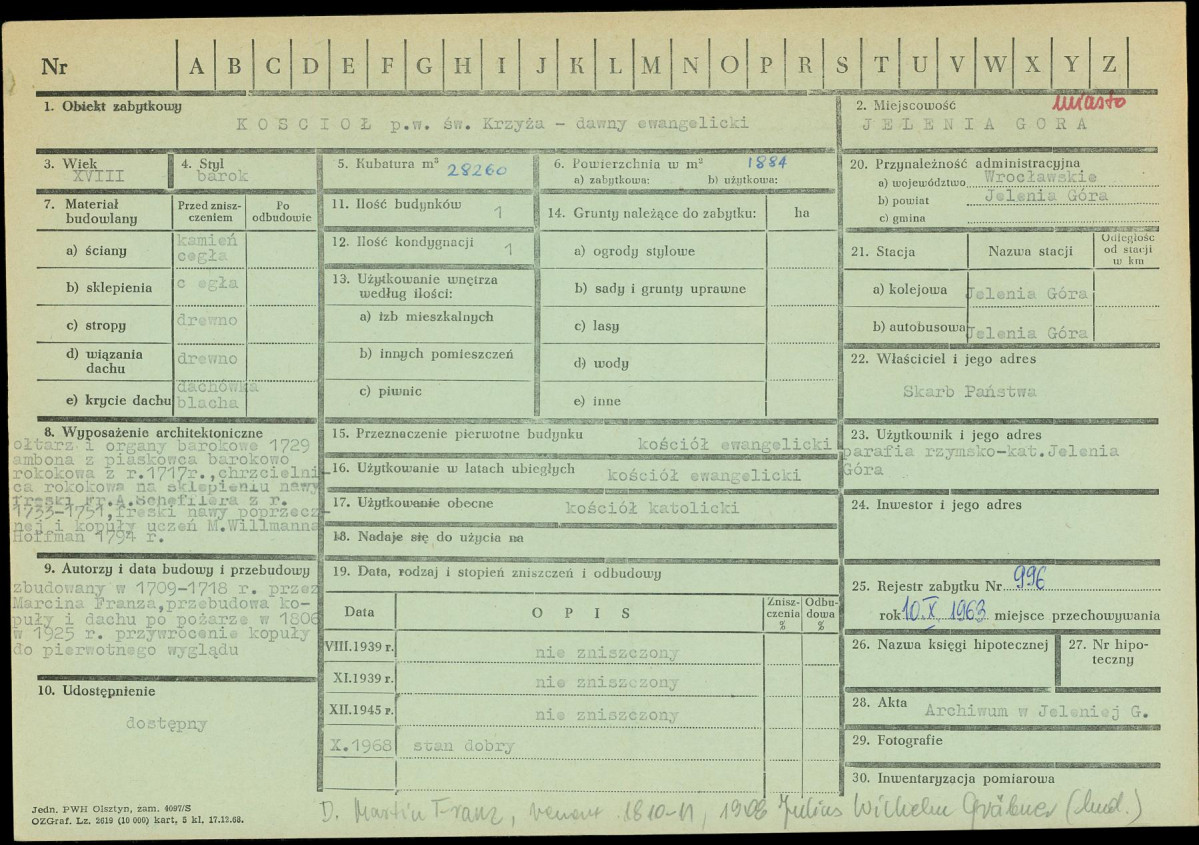 Nr A B C D E F G H I J K L M N O P R S T U V W X Y Z
1. Obiekt zabytkowy
KOSCIOŁ p.w. św. Krzyża – dawny ewangelicki
2. Miejscowość miasto
JELENIA GORA
3. Wiek
XVIII
4. Styl
barok
5. Kubatura m³ 28260
6. Powierzchnia w m² 1884
a) zabytkowa: b) użytkowa:
20. Przynależność administracyjna
a) województwo Wrocławskie
b) powiat Jelenia Góra
c) gmina
7. Materiał budowlany
Przed zniszczeniem
Po odbudowie
a) ściany kamień cegła
b) sklepienia c egła
c) stropy drewno
d) wiązania dachu drewno
e) krycie dachu dachówka blacha
11. Ilość budynków 1
12. Ilość kondygnacji 1
13. Użytkowanie wnętrza
według ilości:
a) izb mieszkalnych
b) innych pomieszczeń
c) piwnic
14. Grunty należące do zabytku: ha
a) ogrody stylowe
b) sady i grunty uprawne
c) lasy
d) wody
e) inne
21. Stacja
Nazwa stacji
Odległość
od stacji
w km
a) kolejowa Jelenia Góra
b) autobusowa Jelenia Góra
22. Właściciel i jego adres
Skarb Państwa
8. Wyposażenie architektoniczne
ołtarz i organy barokowe 1729
ambona z piaskowca barokowo
rokokowa z r.1717r.,chrzcielni-
ca rokokowa na sklepieniu nawy
freski Fr.A.Schefflera z r.
1733-1751,freski nawy poprzecz
nej i kopuły uczeń M.Willmanna
Hoffman 1794 r.
9. Autorzy i data budowy i przebudowy
zbudowany w 1709-1718 r. przez
Marcina Franza,przebudowa ko-
puły i dachu po pożarze w 1806
w 1925 r. przywrócenie kopuły
do pierwotnego wyglądu
10. Udostępnienie
dostępny
15. Przeznaczenie pierwotne budynku
kościół ewangelicki
16. Użytkowanie w latach ubiegłych
kościół ewangelicki
17. Użytkowanie obecne
kościół katolicki
18. Nadaje się do użycia na
19. Data, rodzaj i stopień zniszczeń i odbudowy
Data
OPIS
Zniszczenia %
Odbudowa %
VIII.1939 r. nie zniszczony
XI.1939 r. nie zniszczony
XII.1945 r. nie zniszczony
X.1968 stan dobry
23. Użytkownik i jego adres
parafia rzymsko-kat.Jelenia
Góra
24. Inwestor i jego adres
25. Rejestr zabytku Nr 996
rok 10.X.1963 miejsce przechowywania
26. Nazwa księgi hipotecznej
27. Nr hipoteczny
28. Akta Archiwum w Jeleniej G.
29. Fotografie
30. Inwentaryzacja pomiarowa
Jedn. PWH Olsztyn, zam. 4097/S
OZGraf. Lz. 2619 (10 000) kart, 5 kl, 17.12.68.
D. Martin Franz, 1810-11, 1908 Julius Wilhelm Gräbner